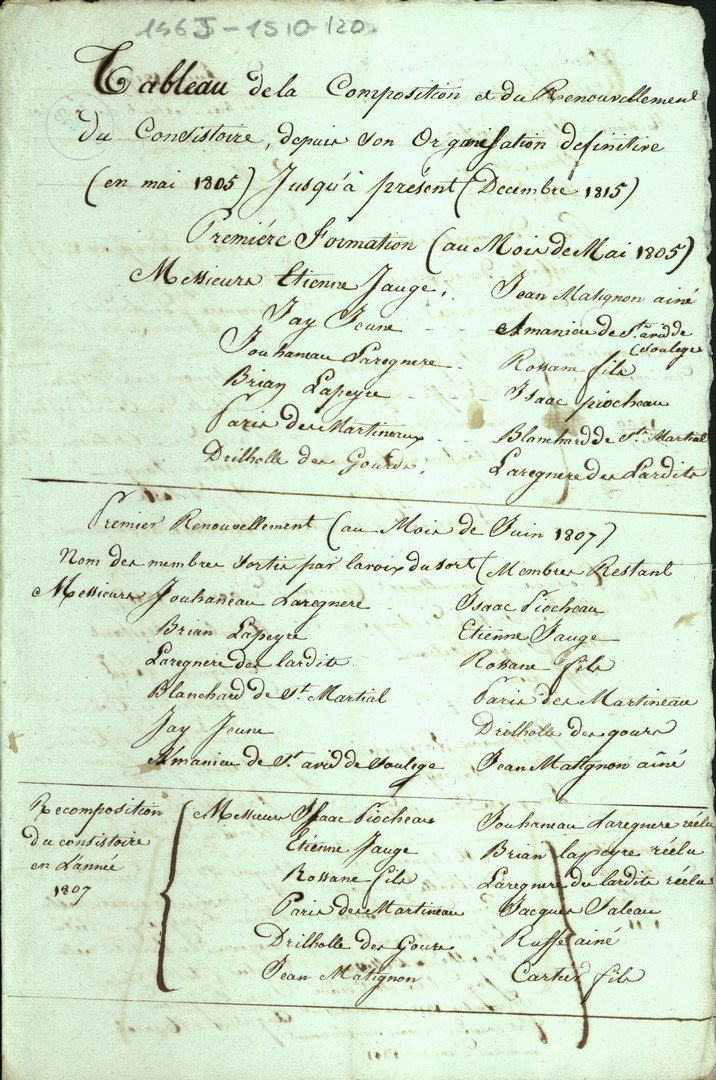 156J-1510-120
Tableau de la Composition et du Renouvellement
du Consistoire, depuis son Organisation definitive
(en mai 1805) Jusqu'à présent (Decembre 1815)
Premiére Formation (au Mois de Mai 1805)
Messieurs Etienne Jauge. Jean Matignon ainé
Jay Jeune - - Amanieu de St. avid de Soulege
Jouhaneau Laregnere - Rossane fils
Brian Lapeyre - - Isaac piocheau
Paris des Martineaux - Blanchard de St. Martial
Drilholle des Gourds. Laregnere des Lardits
Premier Renouvellement (au Mois de Juin 1807)
Nom des membres Sortis par la voix du sort (Membres Restant
Messieurs Jouhaneau Laregnere Isaac Piocheau
Brian Lapeyre Etienne Jauge
Laregnere des lardits Rossane fils
Blanchard de St. Martial Paris des Martineau
Jay Jeune Drilholle des gours
Amanieu de St. avid de Soulege Jean Matignon aîné
Recomposition
du consistoire
en L'année
1807
Messieurs Isaac Piocheau Jouhaneau Laregnere réélu
Etienne Jauge Brian lapeyre réélu
Rossane fils Laregnere des lardits réélu
Paris des Martineau Jacques Saleau
Drilholle des Gours Ruffe ainé
Jean Matignon Cartier fils